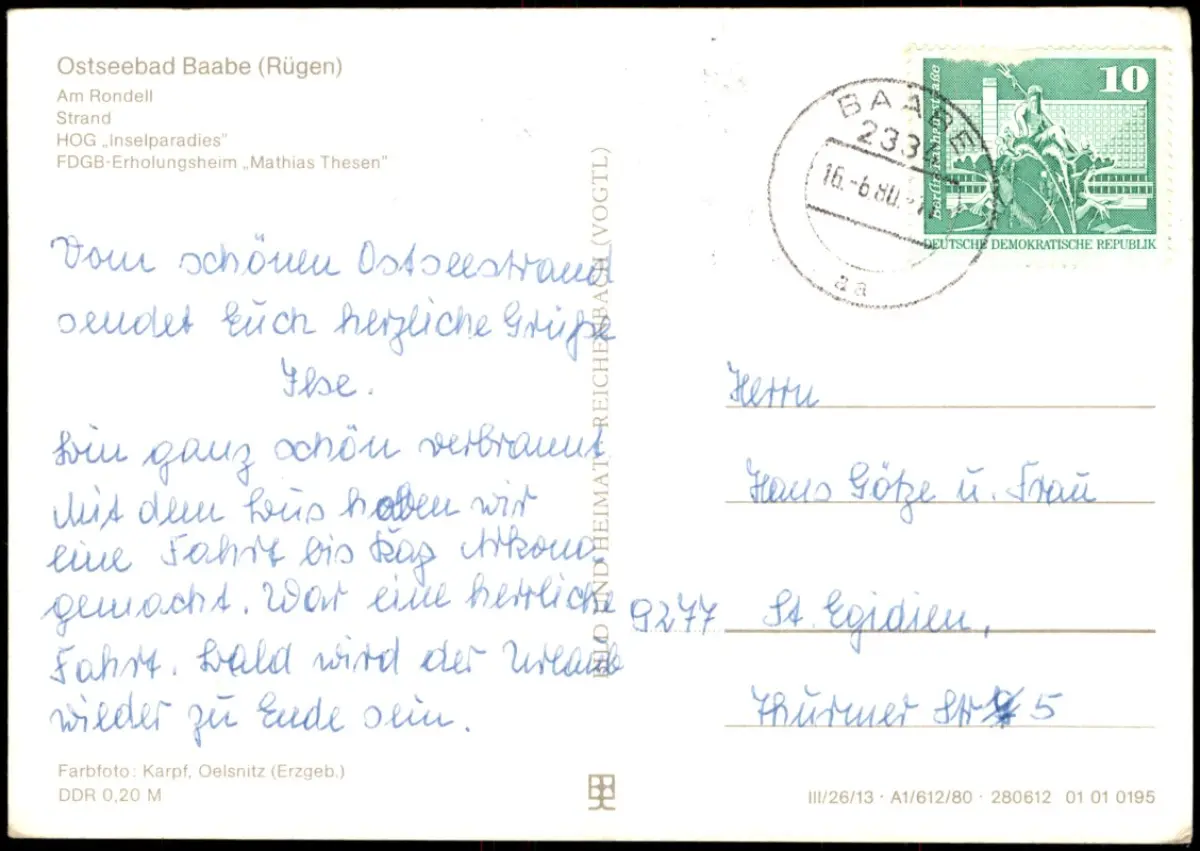 Ostseebad Baabe (Rügen)
Am Rondell
Strand
HOG „Inselparadies"
FDGB-Erholungsheim „Mathias Thesen"
Vom schönen Ostseestrand
sendet Euch herzliche Grüße
Ilse.
Bin ganz schön verbrannt
Mit dem Bus haben wir
eine Fahrt bis Kap Arkona
gemacht. War eine herrliche
Fahrt. Bald wird der Urlaub
wieder zu Ende sein.
Farbfoto: Karpf, Oelsnitz (Erzgeb.)
DDR 0,20 M
BILD UND HEIMAT REICHENBACH (VOGTL)
BAABE
233
16.-6.80.-
aa
10
Berlin, Rathausstraße
DEUTSCHE DEMOKRATISCHE REPUBLIK
Herrn
Hans Götze u. Frau
9277 St. Egidien,
Thürmer Str 5
III/26/13 · A1/612/80 · 280612 01 01 0195